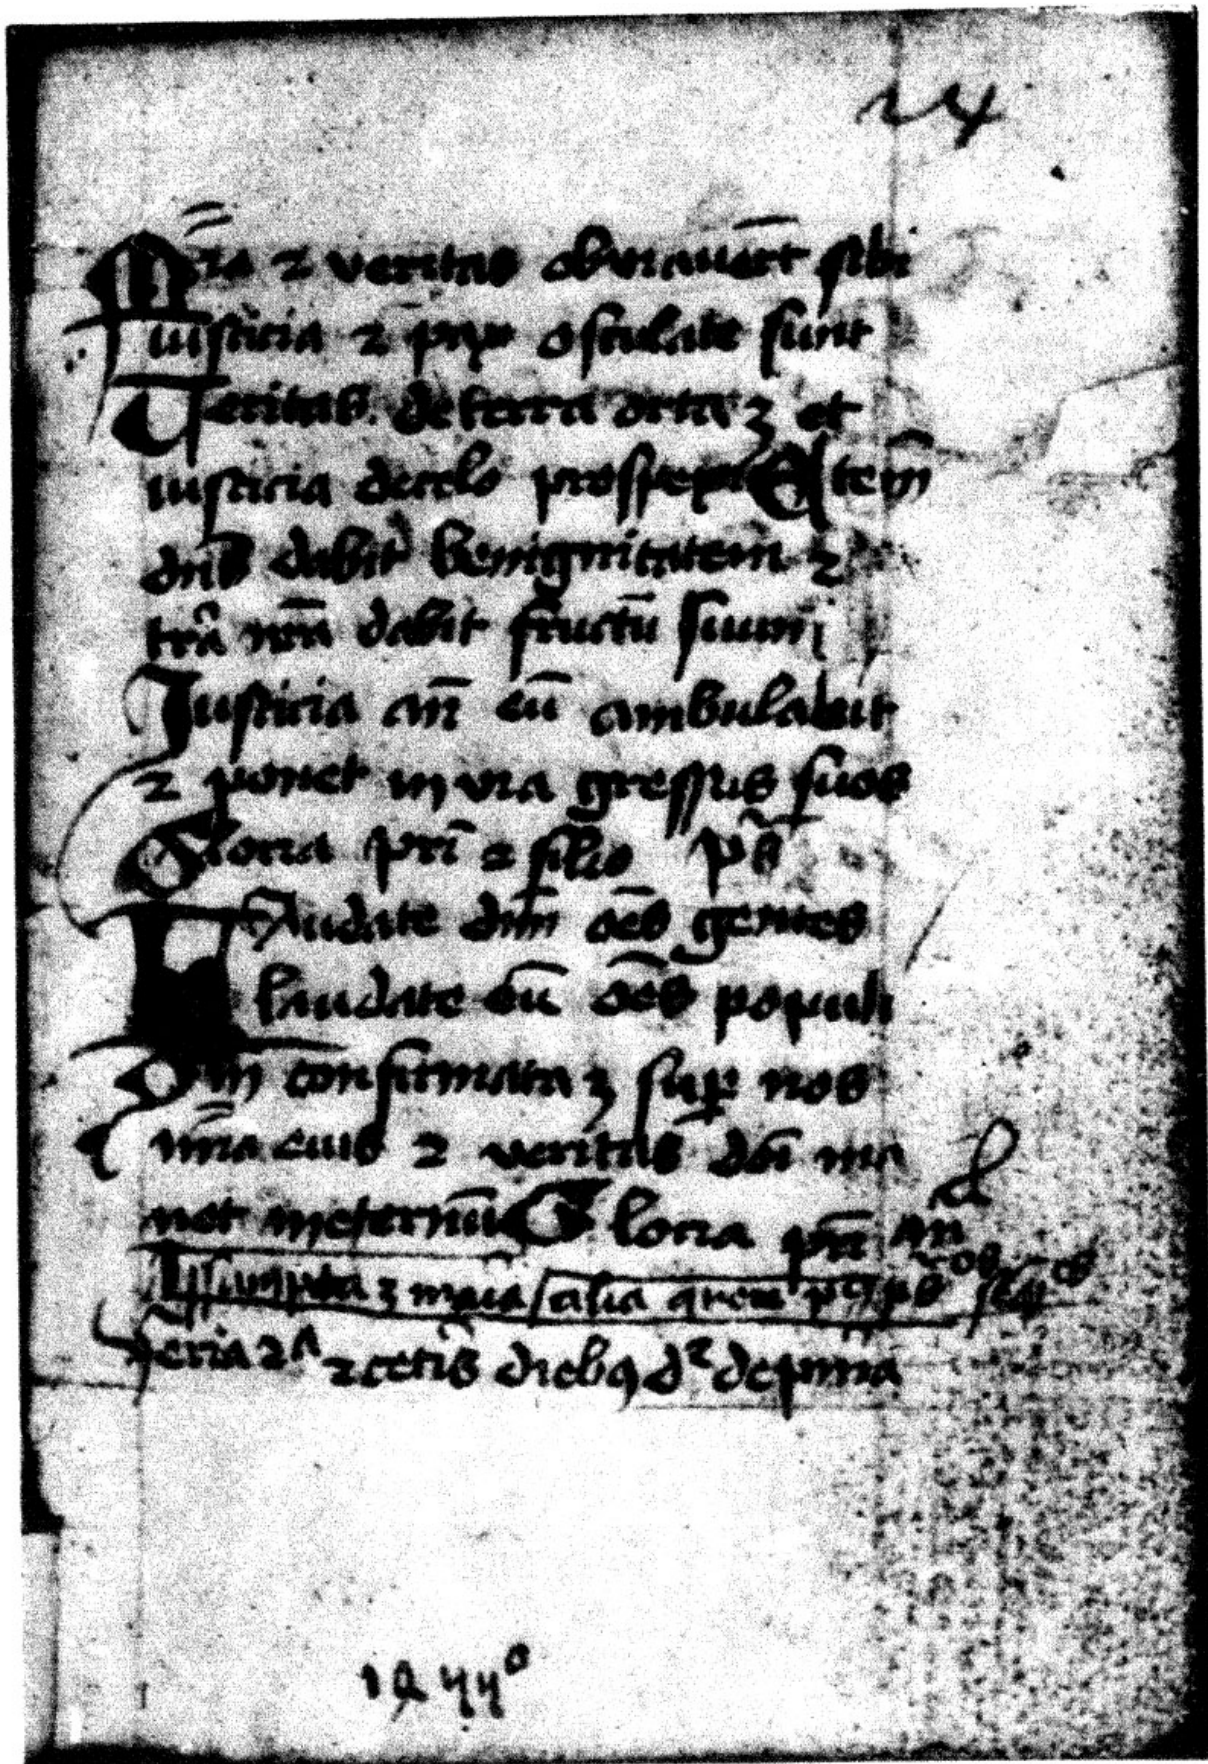 14
M̄ia ⁊ veritas obviaver̄t sibi
iusticia ⁊ pax osculate sunt
Veritas de terra orta ꝫ et
iusticia de celo prospexit Etem̄
dn̄s dabit benignitatem ⁊
tr̄a nr̄a dabit fructū suum
Justicia an̄ eū ambulabit
⁊ ponet in via gressus suos
Gloria pr̄i ⁊ filio pš
Laudate dn̄m oēs gentes
laudate eū oēs populi
Qm̄ confirmata ꝫ suꝑ nos
mīa eius ⁊ veritas dn̄i ma
net in eternū Gloria pr̄i an̄
Assumpta ꝫ maria alia
Feria 2ᵃ ⁊ cetīs diebꝯ dʳ de prima